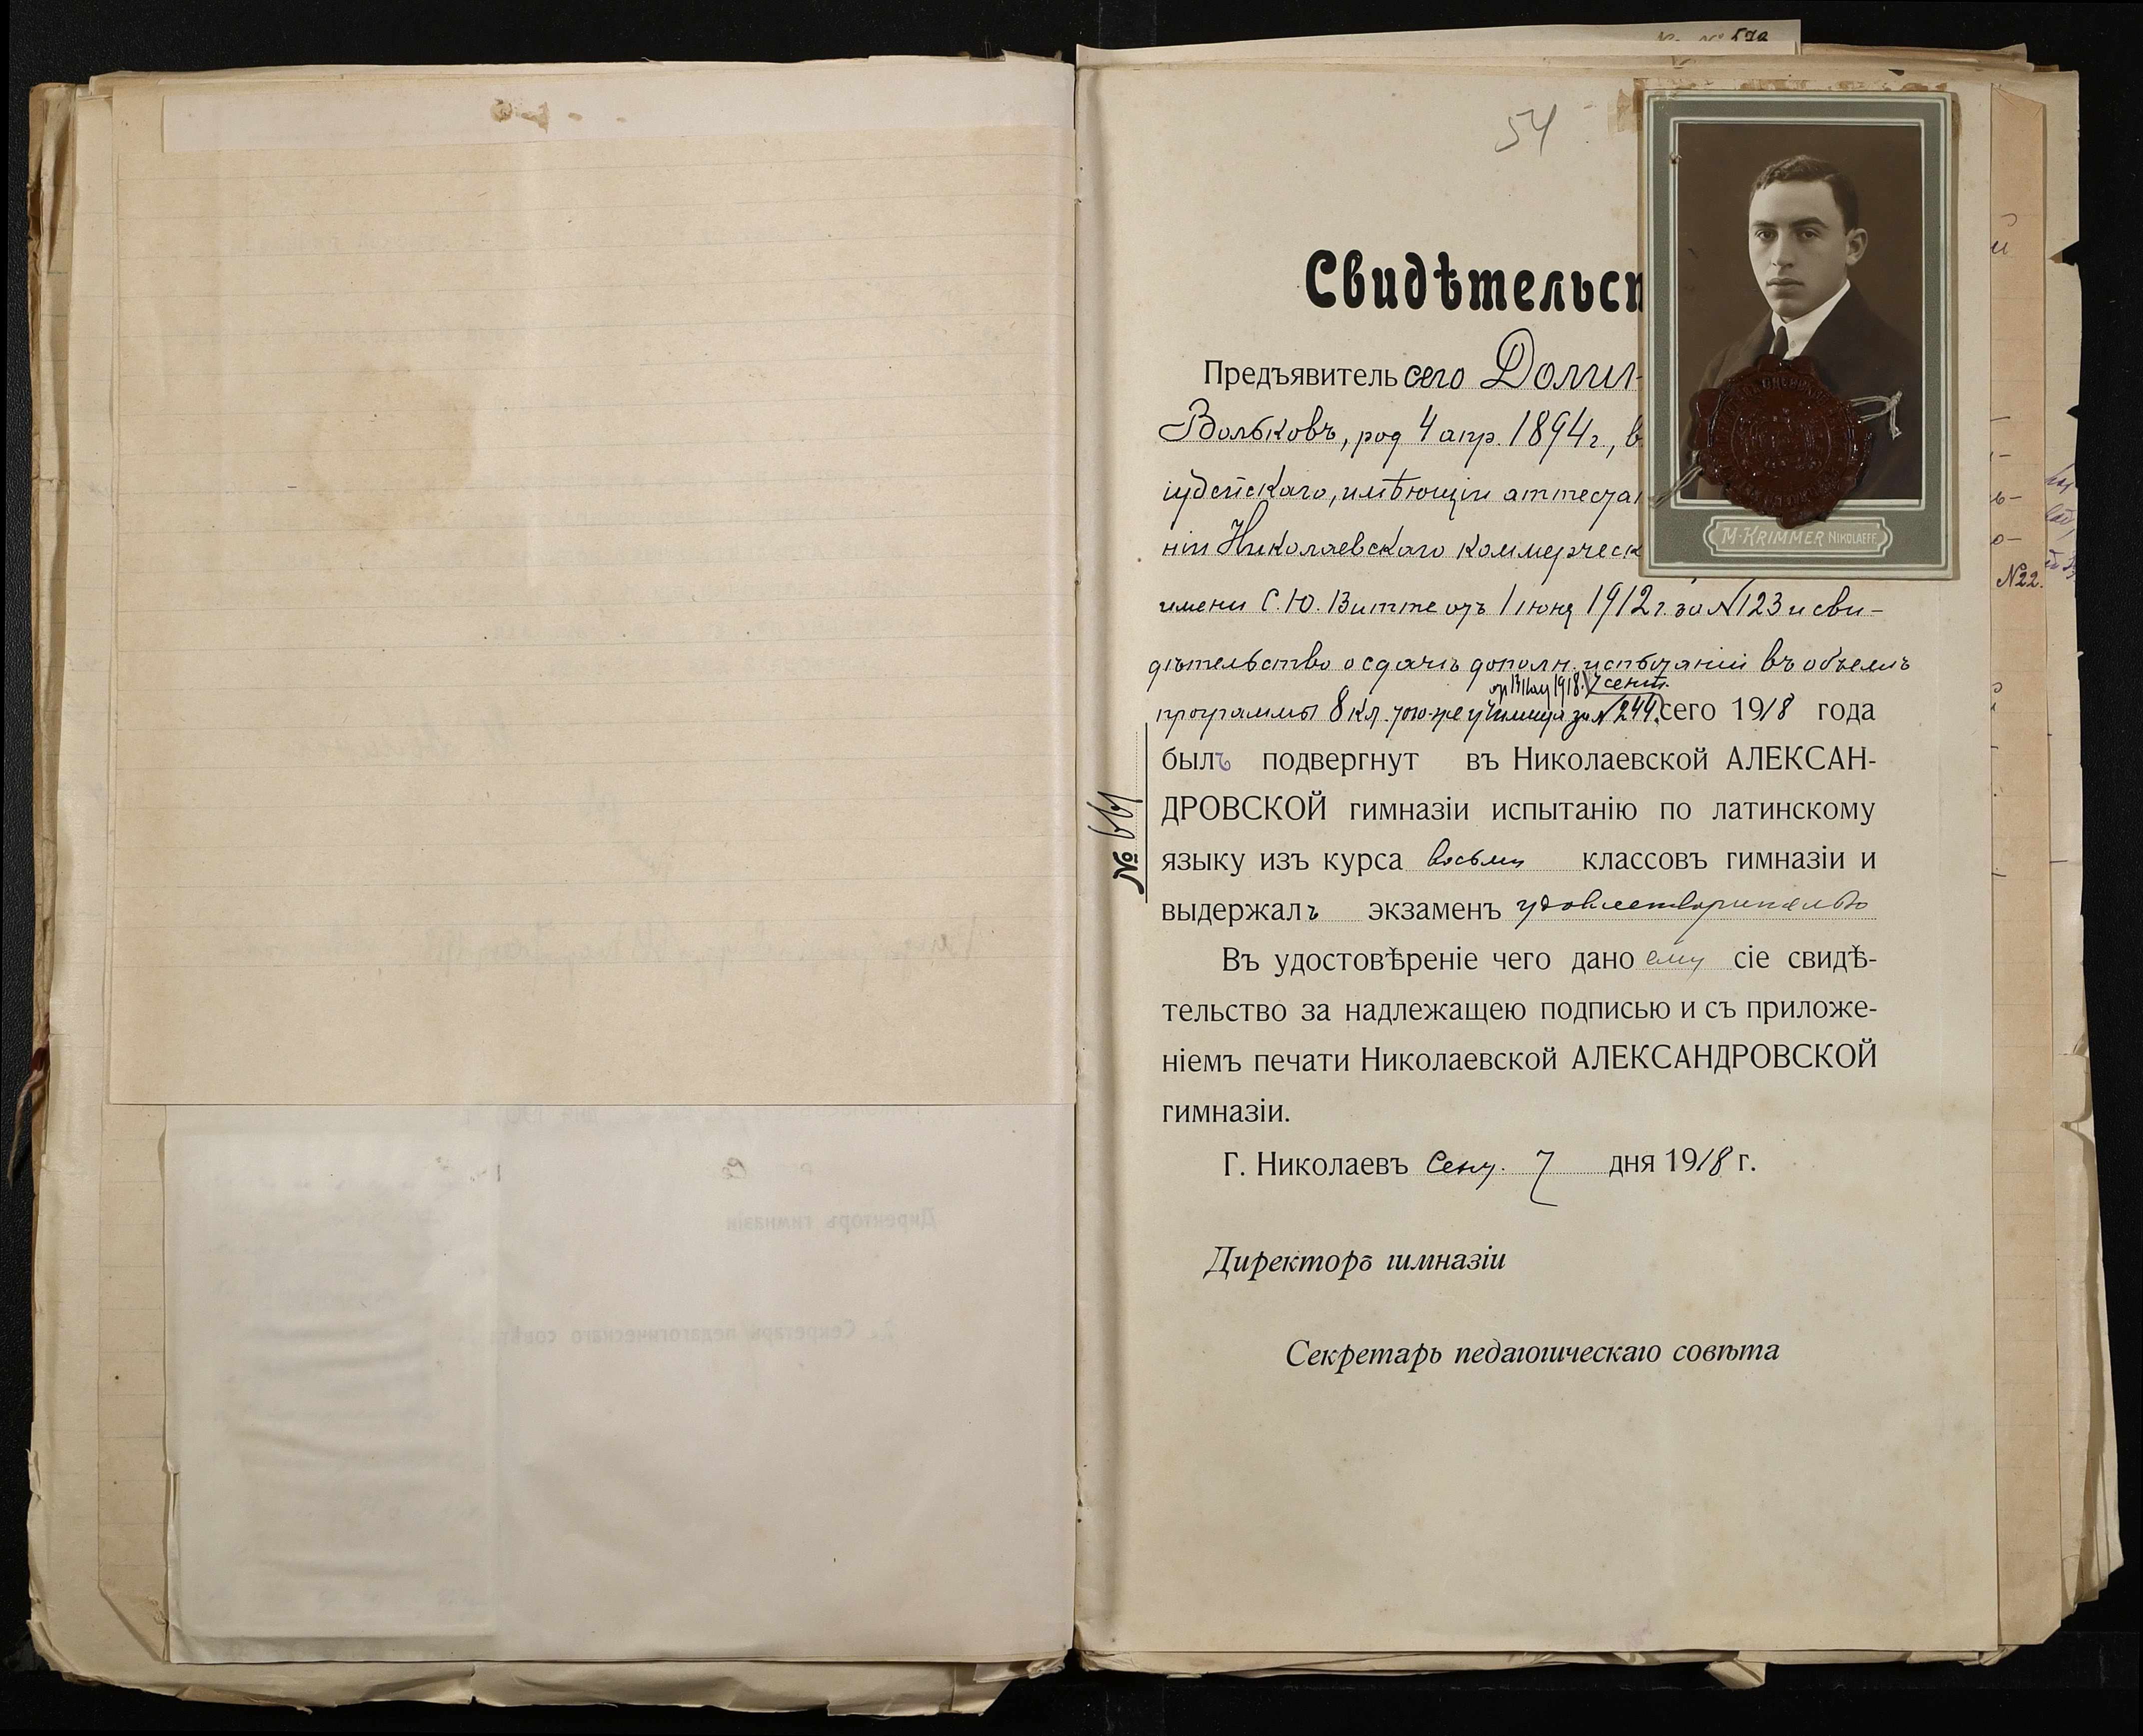 54
Свидѣтельст
Предъявитель сего Долин-
Вольковъ, род 4 апр. 1894 г., в
іудейскаго, имѣющій аттестат
ніи Николаевскаго коммерческ
имени С. Ю. Витте отъ 1 іюня 1912 г. за № 123 и сви-
дѣтельство о сдачѣ дополн. испытаній въ объемѣ
от 13 мая 1918. 7 сент.
программы 8 кл. того-же училища за № 244. сего 1918 года
былъ подвергнут въ Николаевской АЛЕКСАН-
ДРОВСКОЙ гимназіи испытанію по латинскому
языку изъ курса восьми классовъ гимназіи и
выдержалъ экзаменъ удовлетворительно
Въ удостовѣреніе чего дано ему сіе свидѣ-
тельство за надлежащею подписью и съ приложе-
ніемъ печати Николаевской АЛЕКСАНДРОВСКОЙ
гимназіи.
Г. Николаевъ Сент. 7 дня 1918 г.
Директоръ гимназіи
Секретарь педагогическаго совѣта
№ 661
M. KRIMMER NIKOLAEFF.
№22.